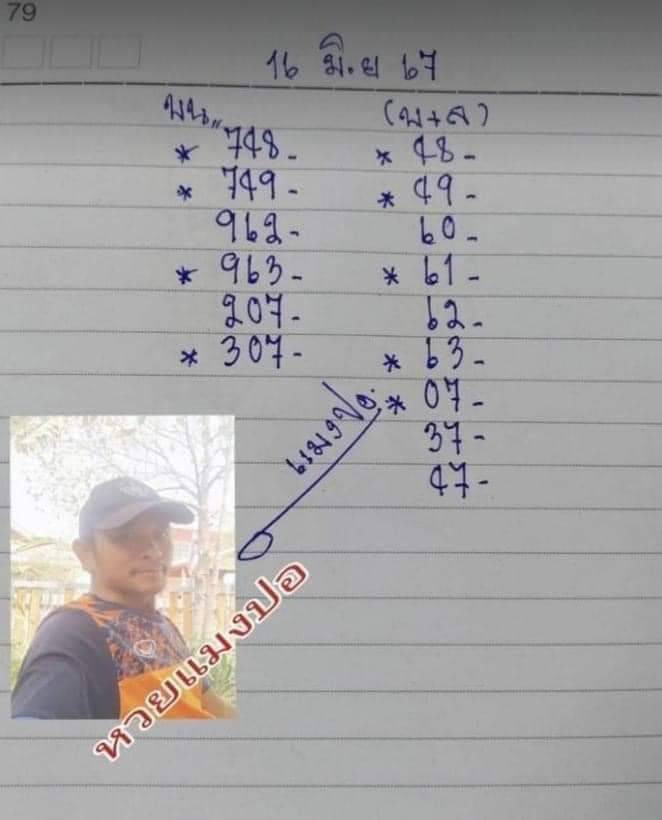 79
16 มิ.ย 67
บน,, (บ+ล)
* 748- * 48-
* 749- * 49-
962- 60-
* 963- * 61-
207- 62-
* 307- * 63-
* 07-
37-
47-
แมงปอ.
หวยแมงปอ